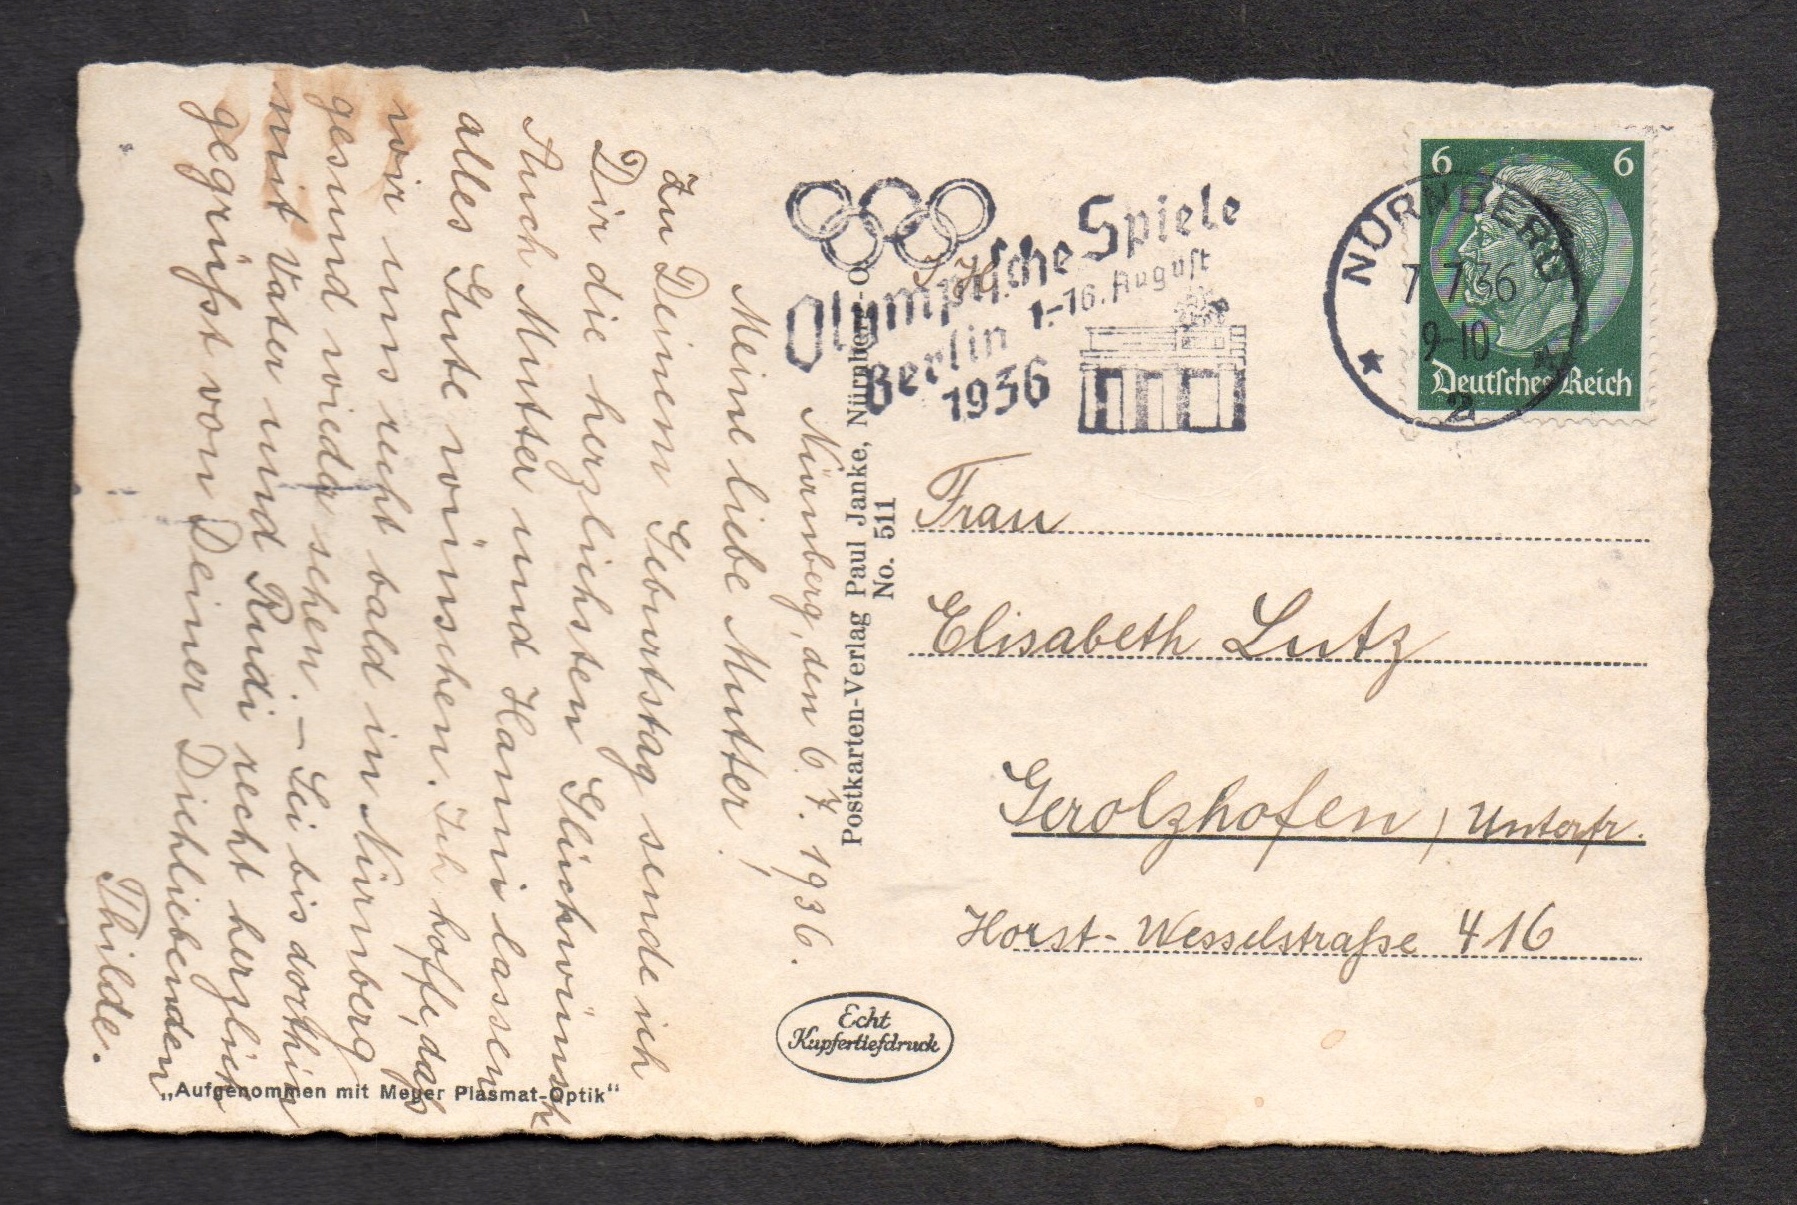 Nürnberg, den 6.7.1936.
Meine liebe Mutter!
Zu Deinem Geburtstag sende ich
Dir die herzlichsten Glückwünsche
Auch Mutter und Hanni lassen
alles Gute wünschen. Ich hoffe, daß
wir uns recht bald in Nürnberg
gesund wieder sehen. – Sei bis dorthin
mit Vater und Rudi recht herzlich
gegrüßt von Deiner Dichliebenden
Thilde.
„Aufgenommen mit Meyer Plasmat-Optik“
Postkarten-Verlag Paul Janke, Nürnberg-O
No. 511
Echt
Kupfertiefdruck
Olympische Spiele
Berlin 1.-16. August
1936
NÜRNBERG
7.7.36
9-10
2
6 6
Deutsches Reich
Frau
Elisabeth Lutz
Gerolzhofen / Unterfr.
Horst-Wesselstraße 416